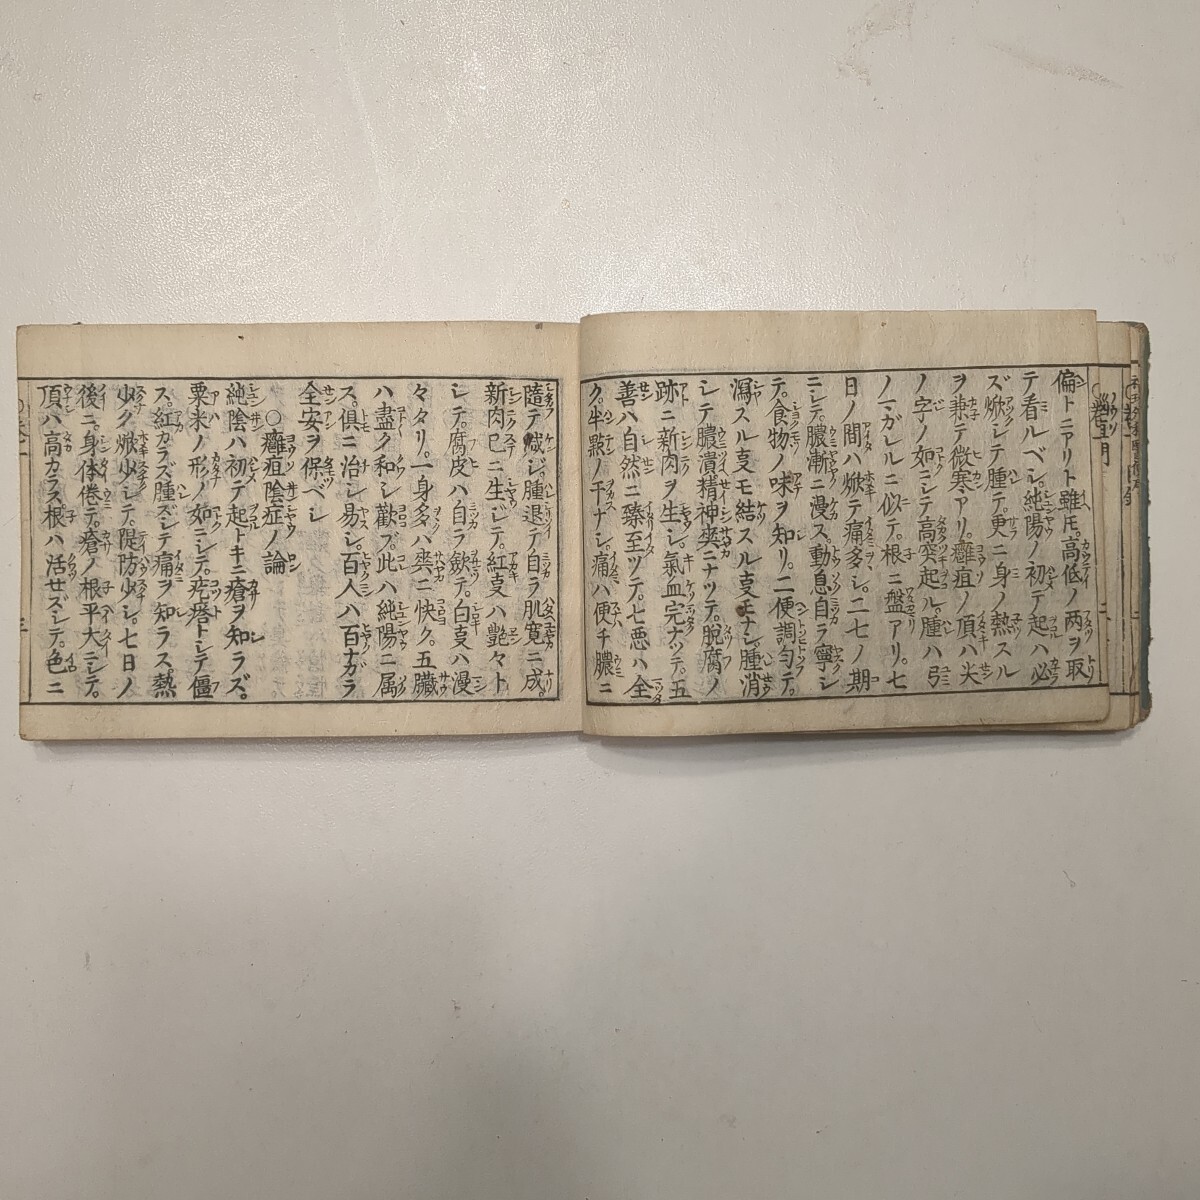 偏トニアリト雖𪜈。高低ノ两ヲ取
テ看ルベシ。純陽ノ初テ起ハ必
ズ焮シテ腫テ。更ニ身ノ熱スル
ヲ兼テ微寒アリ。癰疽ノ頂ハ尖
ノ字ノ如ニシテ高突起ル。腫ハ弓
ノマガレルニ似テ。根ニ盤アリ。七
日ノ間ハ焮テ痛多シ。二七ノ期
ニシテ。膿漸ニ漫ス。動息自ラ寧シ
テ。食物ノ味ヲ知リ。二便調匀テ。
瀉スル𠄘モ結スル𠄘モナシ。腫消
シテ膿潰精神爽ニナツテ。脱腐ノ
跡ニ新肉ヲ生シ。氣血完ナツテ。五
善ハ自然ニ臻至ツテ。七悪ハ全
ク。半點ノ干ナシ。痛ハ便チ膿ニ
隨テ减ジ。腫退テ自ラ肌寛ニ成。
新肉巳ニ生ジテ。紅𠄘ハ艶々ト
シテ。腐皮ハ自ラ歛テ。白𠄘ハ漫
々タリ。一身多ハ爽ニ快ク。五臓
ハ盡ク和シ歡ブ。此ハ純陽ニ属
ス。俱ニ治シ易シ。百人ハ百ナガラ
全安ヲ保ベシ
〇癰疽陰症ノ論
純陰ハ初テ起トキニ瘡ヲ知ラズ。
粟米ノ形ノ如ニシテ。疙瘩トシテ僵
ス。紅カラズ腫ズシテ痛ヲ知ラス。熱
少ク焮少シテ。隄防少シ。七日ノ
後ニ。身体倦テ。瘡ノ根平大ニシテ。
頂ハ高カラス根ハ活せズシテ。色ニ